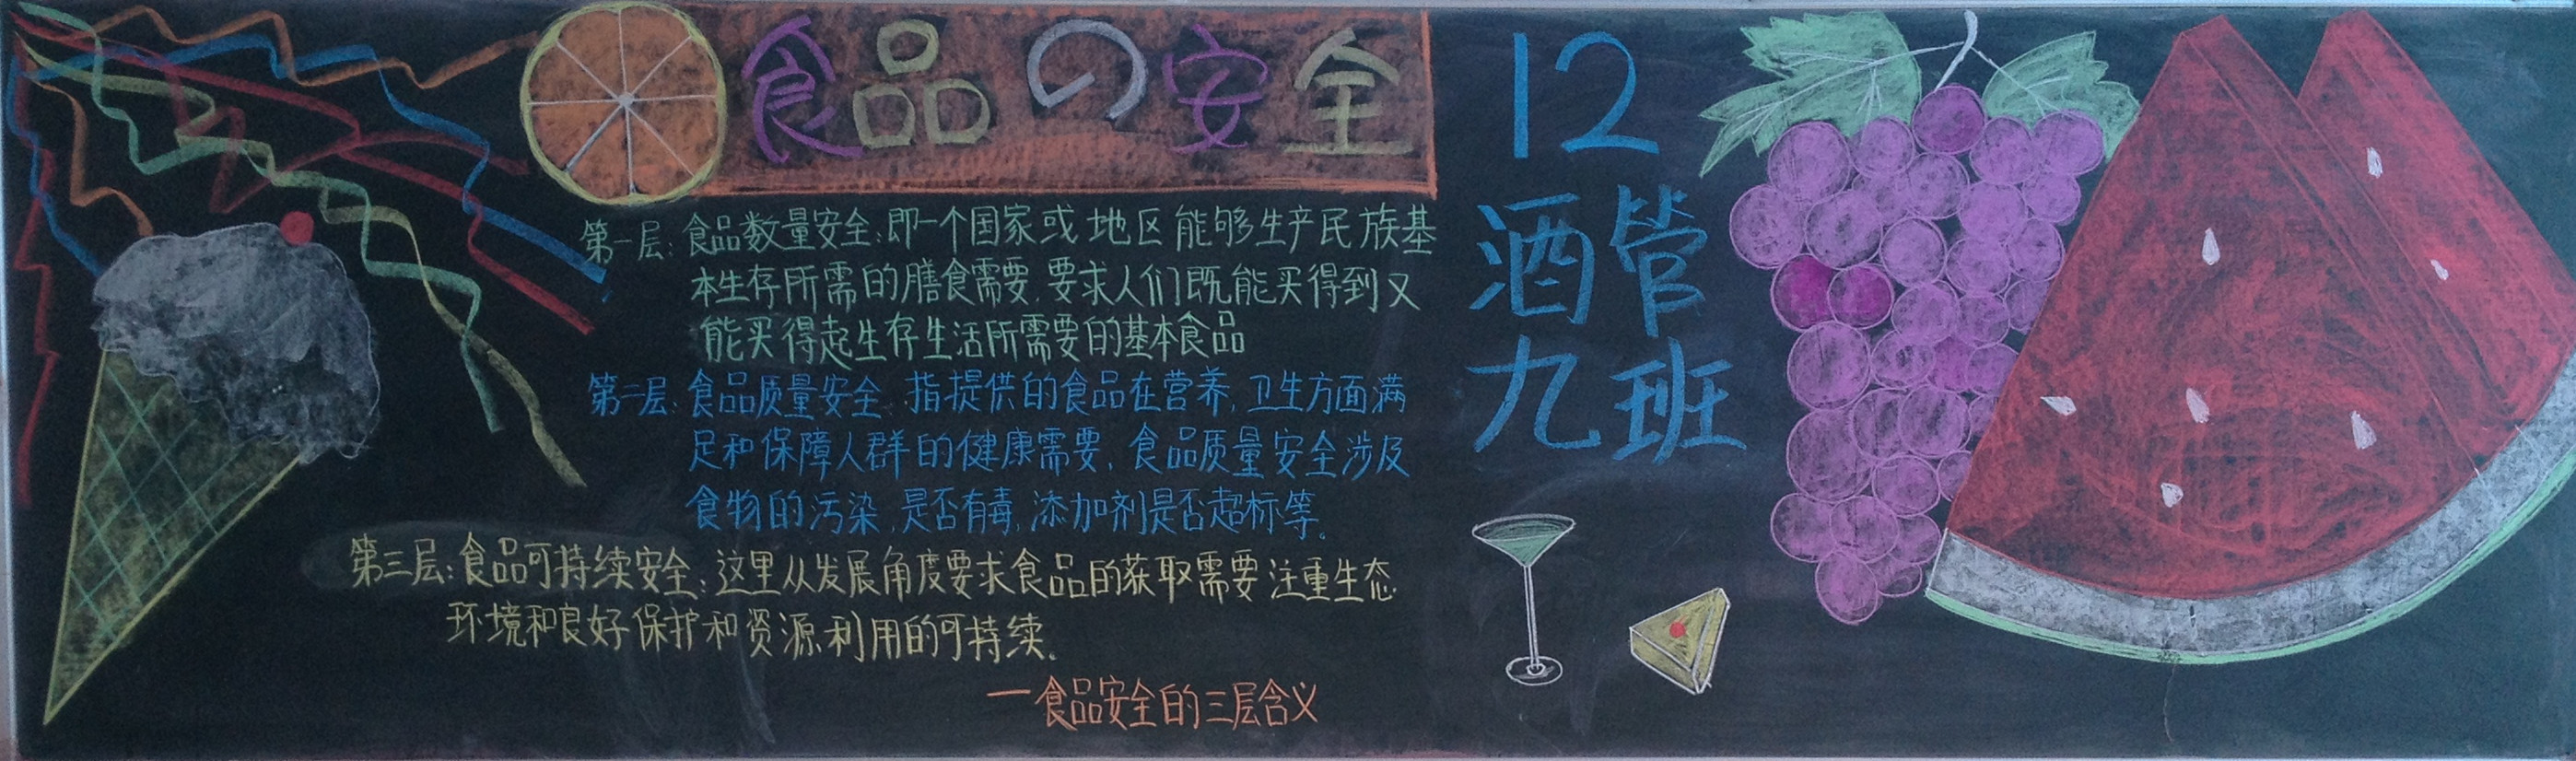 食品の安全
第一层:食品数量安全:即一个国家或地区能够生产民族基
本生存所需的膳食需要.要求人们既能买得到又
能买得起生存生活所需要的基本食品
第二层:食品质量安全.指提供的食品在营养,卫生方面满
足和保障人群的健康需要,食品质量安全涉及
食物的污染,是否有毒,添加剂是否超标等。
第三层:食品可持续安全:这里从发展角度要求食品的获取需要注重生态
环境和良好保护和资源利用的可持续。
一食品安全的三层含义
12
酒管
九班